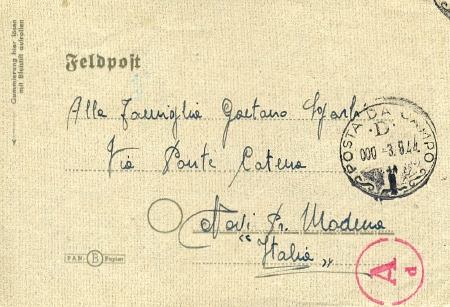 Gummierung hier lösen
mit Bleistift aufrollen
Feldpost
Alla Famiglia Gaetano
Via Ponte Catena
Novi Pr. Modena
"Italia"
POSTA DA CAMPO
"D"
000
FAN. B Papier
A
d